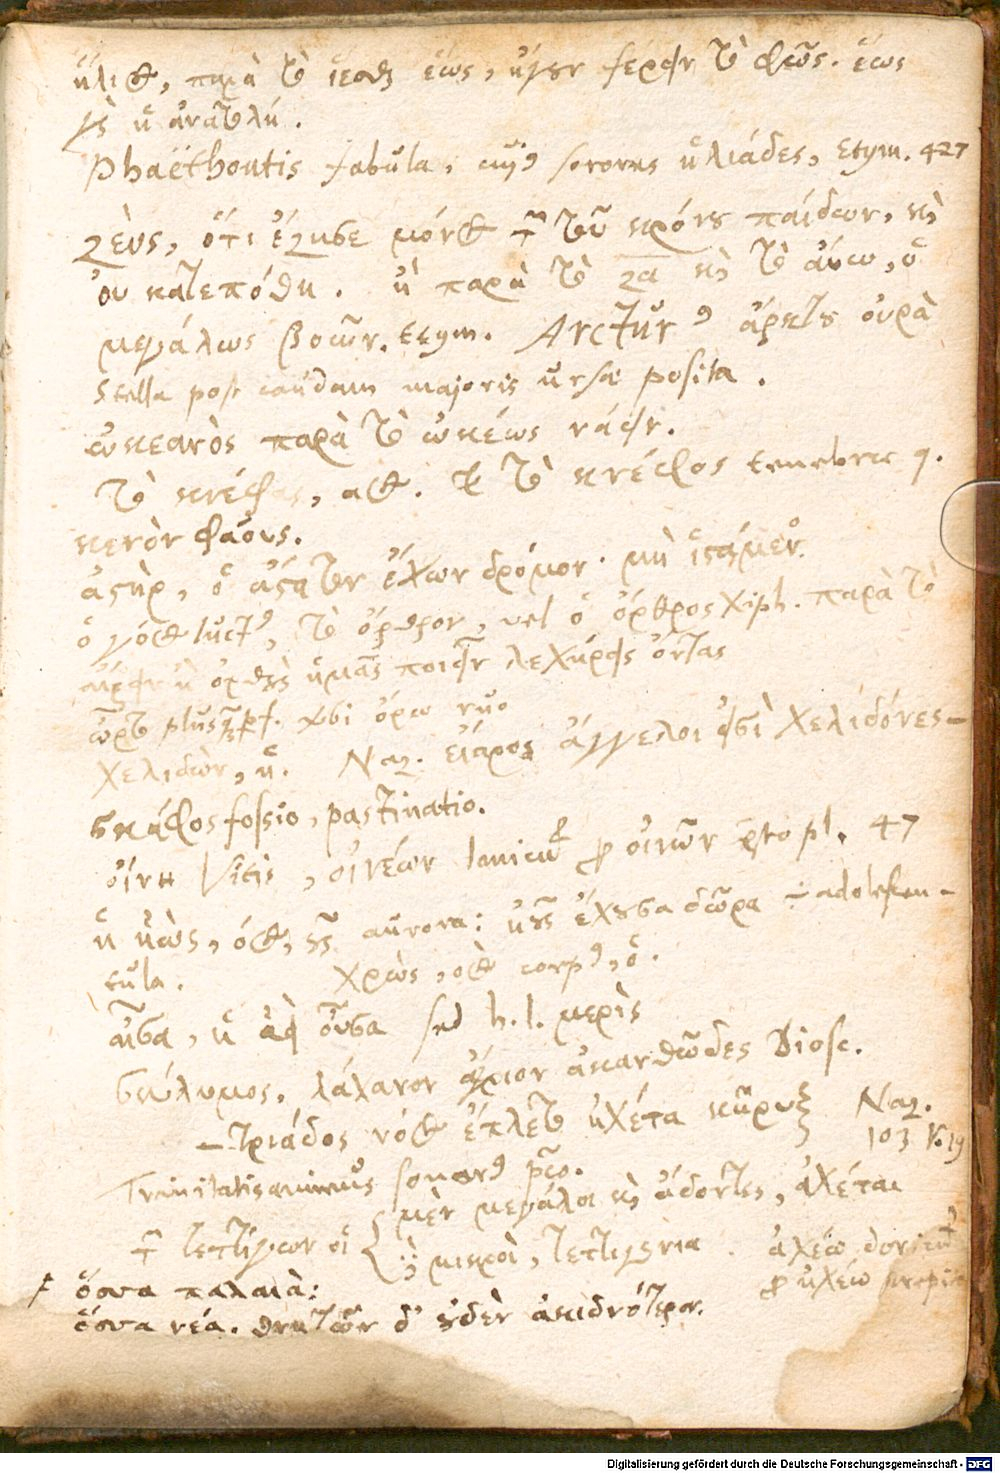 ἥλιος, παρὰ τὸ ἵεσθαι ἕως, ἤγουν φέρειν τὸ φῶς. ἕως
γὰρ ἡ ἀνατολή.
Phaëthontis fabula, cuius sorores ἡλιάδες, Etym. 427
ζεὺς, ὅτι ἔζησε μόνος τῶν τοῦ κρόνου παίδων, καὶ
οὐ κατεπόθη. ἢ παρὰ τὸ ζα καὶ τὸ αὔω, ὁ
μεγάλως βοῶν. Etym. Arcturus ἄρκτου οὐρὰ
stella post caudam majoris ursæ posita.
ὠκεανὸς παρὰ τὸ ὠκέως νάειν.
τὸ κνέφας, ατος. καὶ τὸ κνέφος tenebræ q.
κενὸν φάους.
ἀστὴρ, ὁ ἄστατον ἔχων δρόμον. μὴ ἱστάμενος
ὁ γόος luctus, τὸ ὄρθρον, vel ὁ ὄρθρος Xiph. παρὰ τὸ
αἴρειν ἢ ὀρθοὺς ἡμᾶς ποιεῖν λεχήρεις ὄντας
ὦρτο plusqperf. ὄρω ruo
χελιδὼν, ἡ. Naz. εἴαρος ἄγγελοι εἰσὶ χελιδόνες-
σκάφος fossio, pastinatio.
οἴνη Vitis, οἰνέων Ionicum pro οἰνῶν gto pl. 47
ἡ ἠὼς, όος, οῦς aurora: ἠοῦς ἔχουσα δῶρα ÷ adolescen-
tula. χρὼς, οὸς corpus, ὁ.
αἶσα, ἡ ἀεὶ οὖσα sed h. l. μερὶς
σκόλυμος, λάχανον ἄγριον ἀκανθῶδες Diosc.
- τριάδος νόος ἔπλετο ἠχέτα κῆρυξ Naz.
103 V. 19
Trinitatis animus sonorus præco.
τῶν τεττίγων οἱ { μὲν μεγάλοι καὶ ᾄδοντες, ἀχέται
οἱ δὲ μικροὶ, τεττιγόνια. ἀχέω doricum
pro ἠχέω strepito
ὅσσα παλαιὰ:
ὅσσα νέα. θνητῶν δ' οὐδὲν ἀκιδνότερον.
Digitalisierung gefördert durch die Deutsche Forschungsgemeinschaft - DFG